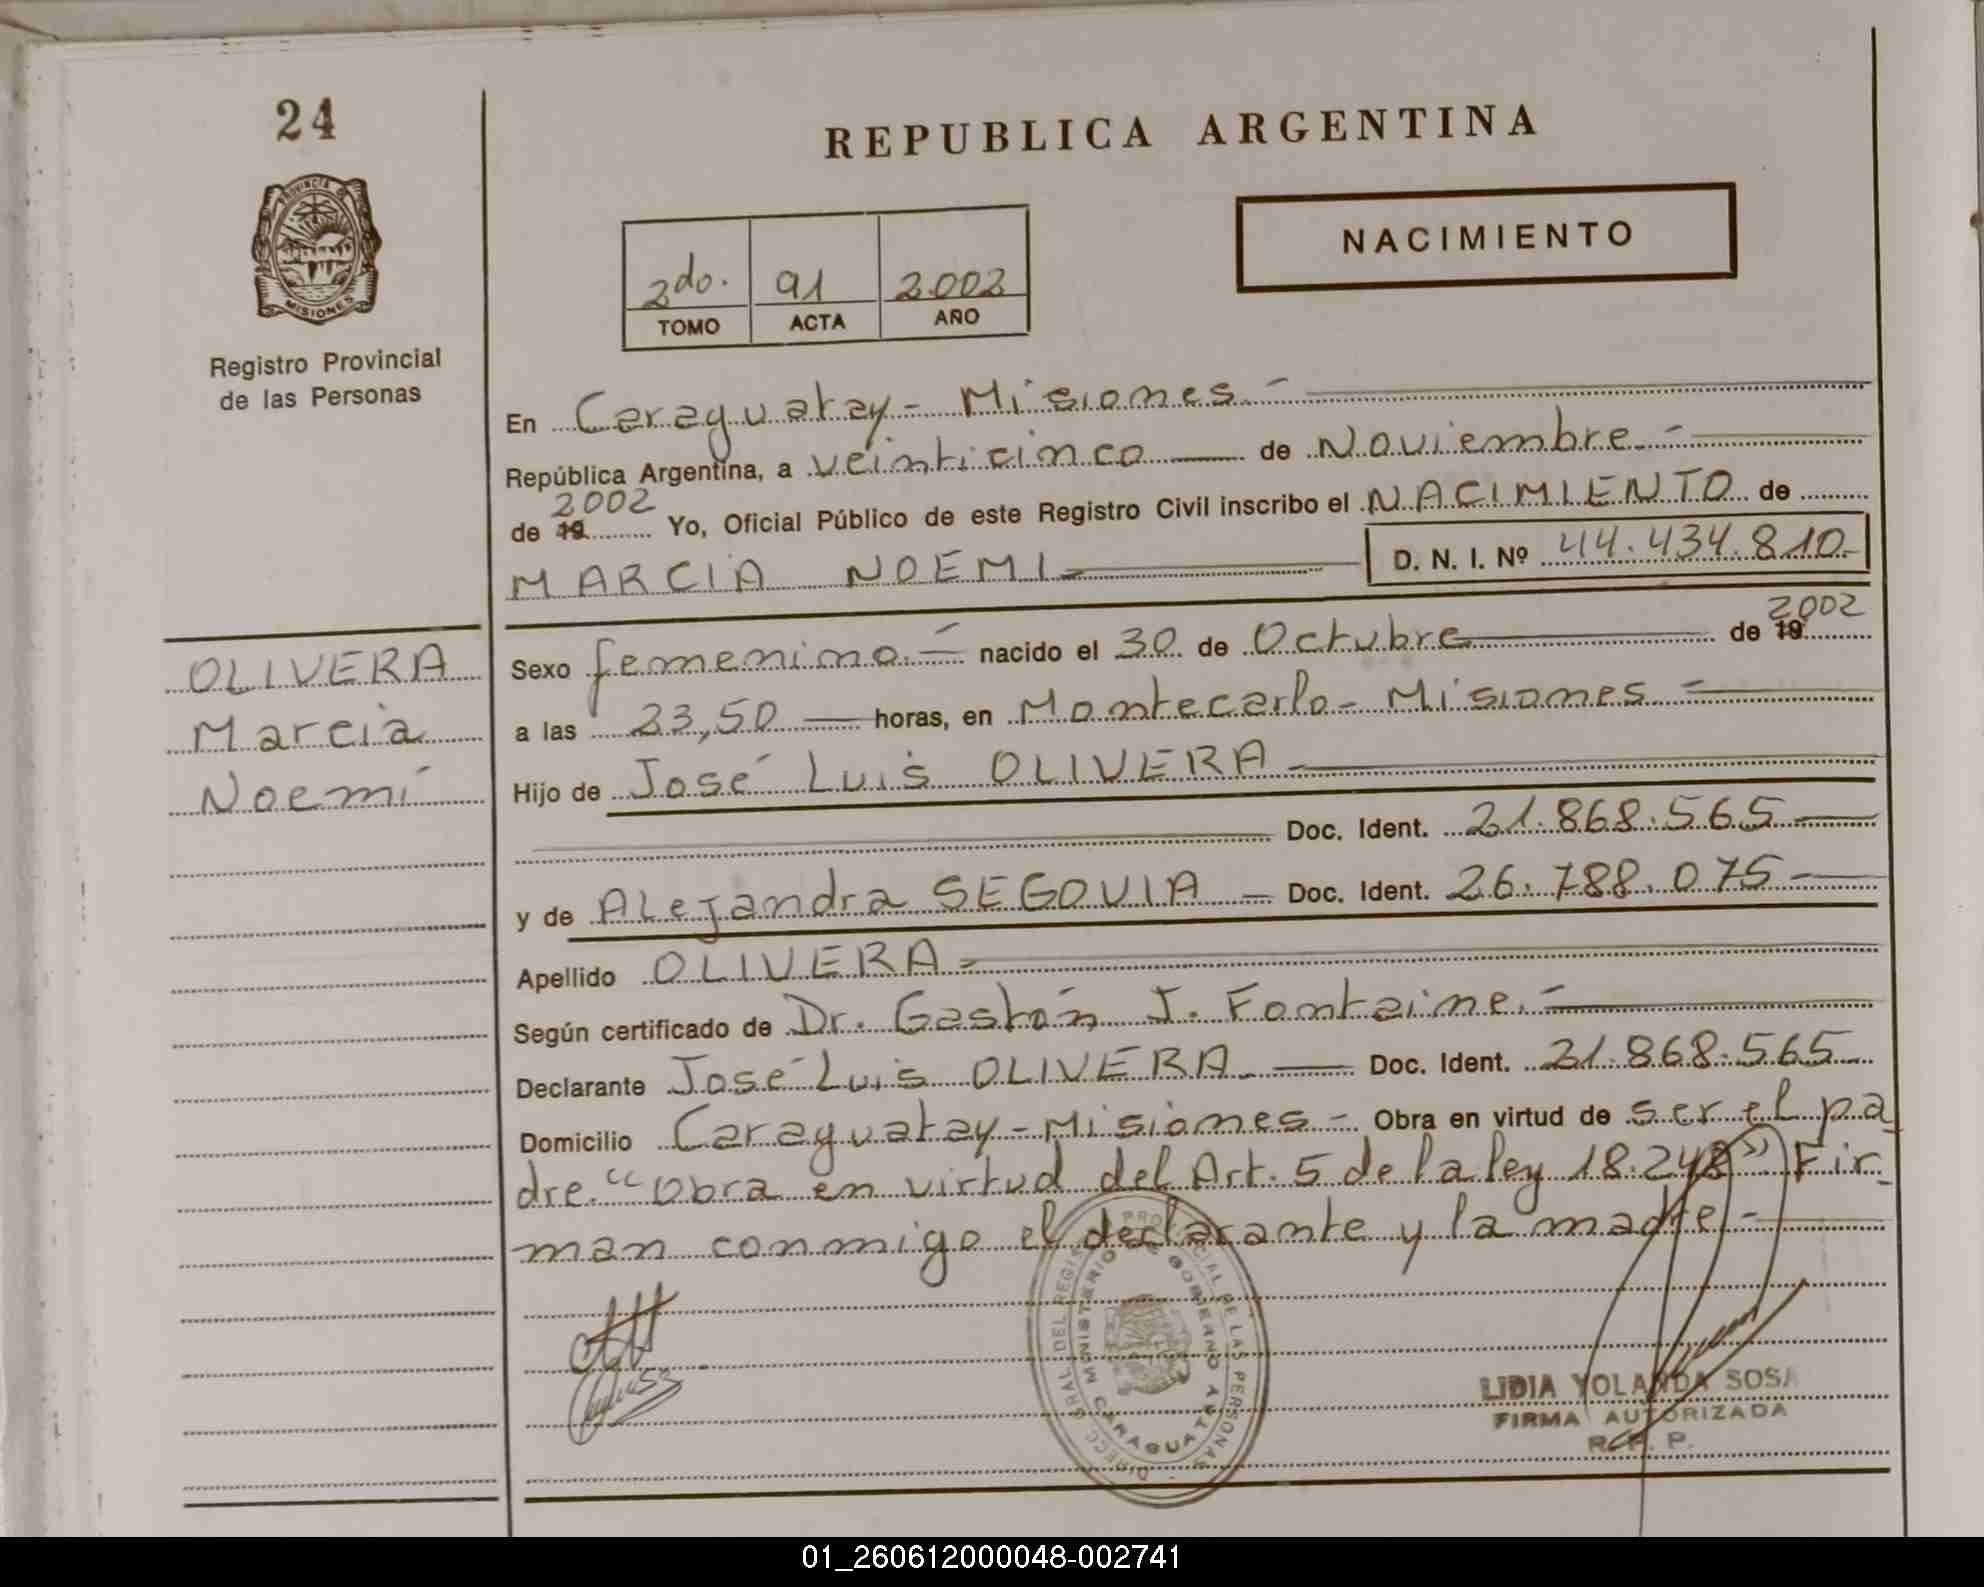 24
REPUBLICA ARGENTINA
PROVINCIA DE MISIONES
NACIMIENTO
2do. 91 2.002
TOMO ACTA AÑO
Registro Provincial
de las Personas
En Caraguatay - Misiones.-
República Argentina, a veinticinco de Noviembre.-
2002
de 19 Yo, Oficial Público de este Registro Civil inscribo el NACIMIENTO de
MARCIA NOEMI D. N. I. Nº 44.434.810-
2002
OLIVERA
Marcia
Noemí
Sexo femenino.- nacido el 30 de Octubre de 19
a las 23,50 horas, en Montecarlo - Misiones -
Hijo de José Luis OLIVERA -
Doc. Ident. 21.868.565
y de Alejandra SEGOVIA - Doc. Ident. 26.788.075 -
Apellido OLIVERA -
Según certificado de Dr. Gastón J. Fontaine.-
Declarante José Luis OLIVERA. Doc. Ident. 21.868.565
Domicilio Caraguatay - Misiones - Obra en virtud de ser el pa
dre. "Obra en virtud del Art. 5 de la ley 18.248" Fir-
man conmigo el declarante y la madre -
MINISTERIO DE GOBIERNO CARAGUATAY
LIDIA YOLANDA SOSA
FIRMA AUTORIZADA
R. P. P.
01_260612000048-002741